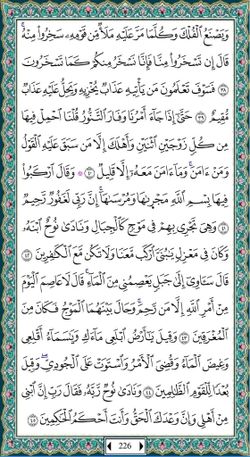 وَيَصْنَعُ ٱلْفُلْكَ وَكُلَّمَا مَرَّ عَلَيْهِ مَلَأٌ مِّن قَوْمِهِۦ سَخِرُوا۟ مِنْهُ ۚ
قَالَ إِن تَسْخَرُوا۟ مِنَّا فَإِنَّا نَسْخَرُ مِنكُمْ كَمَا تَسْخَرُونَ
٣٨ فَسَوْفَ تَعْلَمُونَ مَن يَأْتِيهِ عَذَابٌ يُخْزِيهِ وَيَحِلُّ عَلَيْهِ عَذَابٌ
مُّقِيمٌ ٣٩ حَتَّىٰٓ إِذَا جَآءَ أَمْرُنَا وَفَارَ ٱلتَّنُّورُ قُلْنَا ٱحْمِلْ فِيهَا
مِن كُلٍّ زَوْجَيْنِ ٱثْنَيْنِ وَأَهْلَكَ إِلَّا مَن سَبَقَ عَلَيْهِ ٱلْقَوْلُ
وَمَنْ ءَامَنَ ۚ وَمَآ ءَامَنَ مَعَهُۥٓ إِلَّا قَلِيلٌ ٤٠ ۞ وَقَالَ ٱرْكَبُوا۟
فِيهَا بِسْمِ ٱللَّهِ مَجْر۪ىٰهَا وَمُرْسَىٰهَآ ۚ إِنَّ رَبِّى لَغَفُورٌ رَّحِيمٌ
٤١ وَهِىَ تَجْرِى بِهِمْ فِى مَوْجٍ كَٱلْجِبَالِ وَنَادَىٰ نُوحٌ ٱبْنَهُۥ
وَكَانَ فِى مَعْزِلٍ يَـٰبُنَىَّ ٱرْكَب مَّعَنَا وَلَا تَكُن مَّعَ ٱلْكَـٰفِرِينَ ٤٢
قَالَ سَـَٔاوِىٓ إِلَىٰ جَبَلٍ يَعْصِمُنِى مِنَ ٱلْمَآءِ ۚ قَالَ لَا عَاصِمَ ٱلْيَوْمَ
مِنْ أَمْرِ ٱللَّهِ إِلَّا مَن رَّحِمَ ۚ وَحَالَ بَيْنَهُمَا ٱلْمَوْجُ فَكَانَ مِنَ
ٱلْمُغْرَقِينَ ٤٣ وَقِيلَ يَـٰٓأَرْضُ ٱبْلَعِى مَآءَكِ وَيَـٰسَمَآءُ أَقْلِعِى
وَغِيضَ ٱلْمَآءُ وَقُضِىَ ٱلْأَمْرُ وَٱسْتَوَتْ عَلَى ٱلْجُودِىِّ ۖ وَقِيلَ
بُعْدًا لِّلْقَوْمِ ٱلظَّـٰلِمِينَ ٤٤ وَنَادَىٰ نُوحٌ رَّبَّهُۥ فَقَالَ رَبِّ إِنَّ ٱبْنِى
مِنْ أَهْلِى وَإِنَّ وَعْدَكَ ٱلْحَقُّ وَأَنتَ أَحْكَمُ ٱلْحَـٰكِمِينَ ٤٥
226